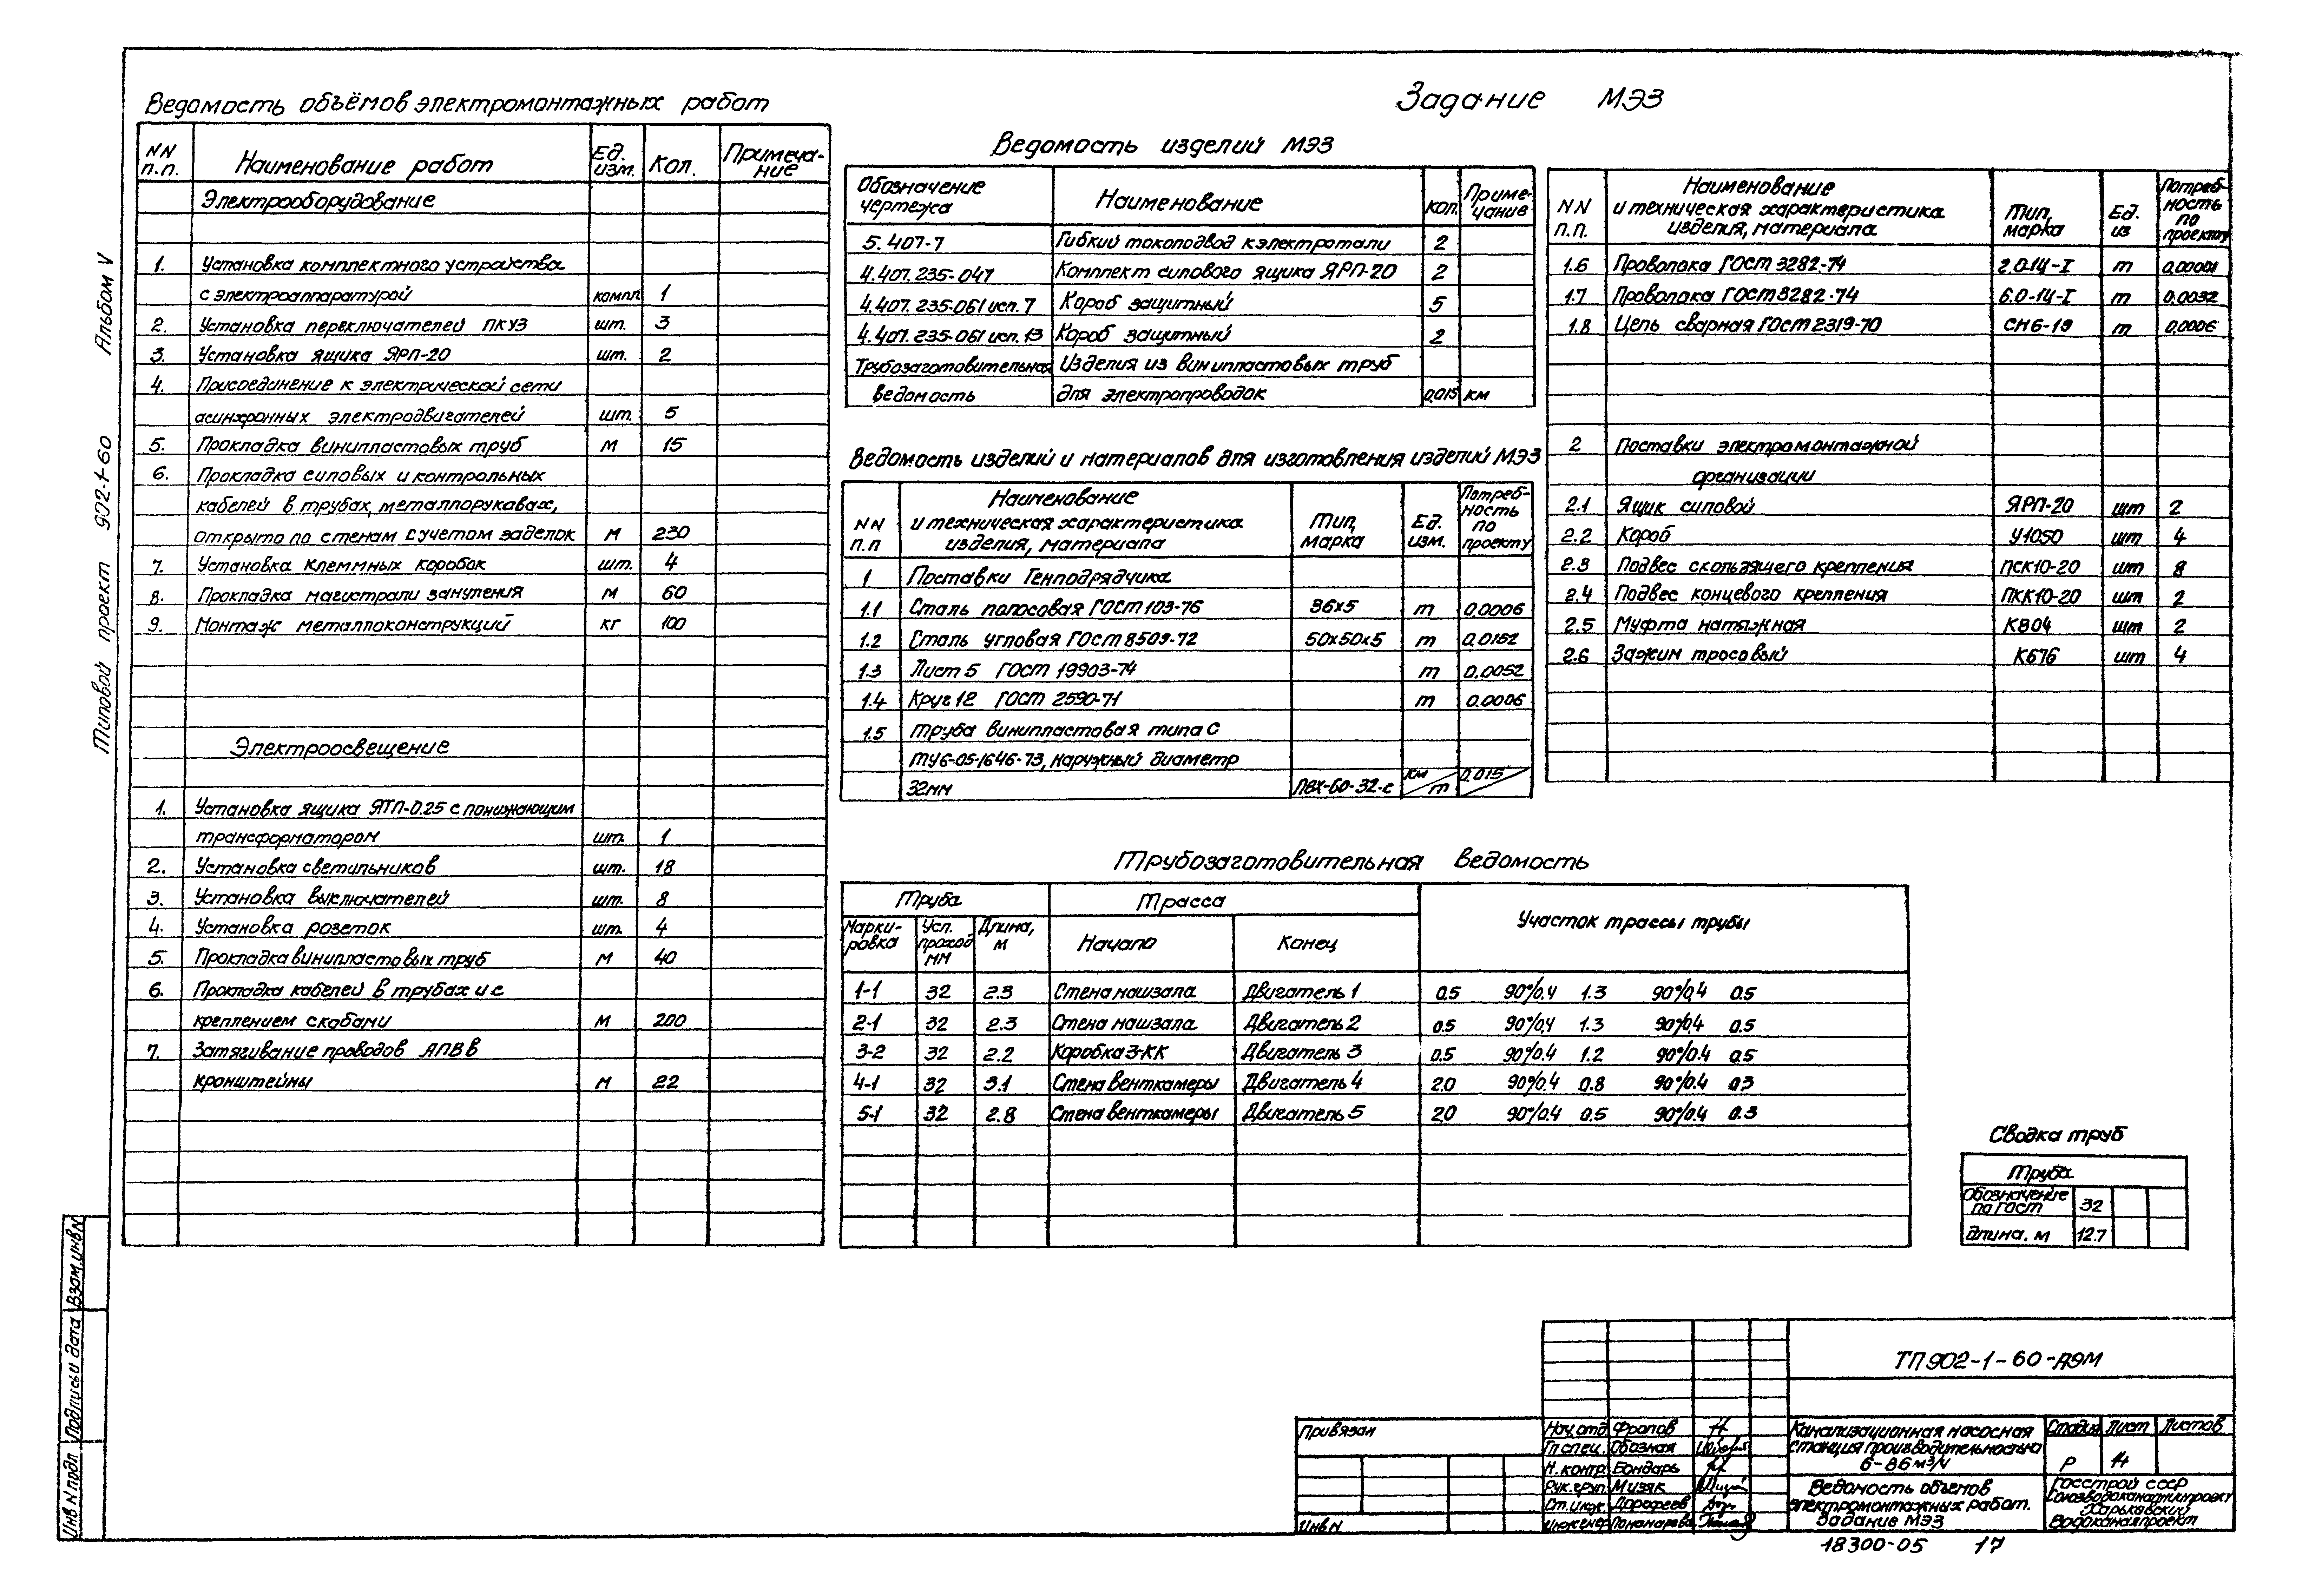 Ведомость объёмов электромонтажных работ
NN п.п. Наименование работ Ед. изм. Кол. Примеча-ние
Электрооборудование
1. Установка комплектного устройства
с электроаппаратурой компл 1
2. Установка переключателей ПКУЗ шт. 3
3. Установка ящика ЯРП-20 шт. 2
4. Присоединение к электрической сети
асинхронных электродвигателей шт. 5
5. Прокладка винипластовых труб м 15
6. Прокладка силовых и контрольных
кабелей в трубах, металлорукавах,
открыто по стенам с учетом заделок м 230
7. Установка клеммных коробок шт. 4
8. Прокладка магистрали зануления м 60
9. Монтаж металлоконструкций кг 100
Электроосвещение
1. Установка ящика ЯТП-0.25 с понижающим
трансформатором шт. 1
2. Установка светильников шт. 18
3. Установка выключателей шт. 8
4. Установка розеток шт. 4
5. Прокладка винипластовых труб м 40
6. Прокладка кабелей в трубах и с
креплением скобами м 200
7. Затягивание проводов АПВ в
кронштейны м 22
Задание МЭЗ
Ведомость изделий МЭЗ
Обозначение чертежа Наименование Кол. Приме-чание
5.407-7 Гибкий токоподвод к электротали 2
4.407.235-047 Комплект силового ящика ЯРП-20 2
4.407.235-061 исп. 7 Короб защитный 5
4.407.235-061 исп. 13 Короб защитный 2
Трубозаготовительная Изделия из винипластовых труб
ведомость для электропроводок 0,015 км
Ведомость изделий и материалов для изготовления изделий МЭЗ
NN п.п Наименование и техническая характеристика изделия, материала Тип, марка Ед. изм. Потреб-ность по проекту
1 Поставки Генподрядчика
1.1 Сталь полосовая ГОСТ 103-76 36х5 т 0,0006
1.2 Сталь угловая ГОСТ 8509-72 50х50х5 т 0,0152
1.3 Лист 5 ГОСТ 19903-74 т 0,0052
1.4 Круг 12 ГОСТ 2590-71 т 0.0006
1.5 Труба винипластовая типа С
ТУ6-05-1646-73, наружный диаметр
32мм ПВХ-60-32-с км/т 0.015
NN п.п. Наименование и техническая характеристика изделия, материала Тип, марка Ед. из Потреб-ность по проекту
1.6 Проволока ГОСТ 3282-74 2.0-14-I т 0,00001
1.7 Проволока ГОСТ 3282-74 6.0-14-I т 0,0032
1.8 Цепь сварная ГОСТ 2319-70 СН6-19 т 0,0006
2 Поставки электромонтажной
организации
2.1 Ящик силовой ЯРП-20 шт 2
2.2 Короб У1050 шт 4
2.3 Подвес скользящего крепления ПСК10-20 шт 8
2.4 Подвес концевого крепления ПКК10-20 шт 2
2.5 Муфта натяжная К804 шт 2
2.6 Зажим тросовый К676 шт 4
Трубозаготовительная ведомость
Труба Трасса Участок трассы трубы
Марки-ровка Усл. проход мм Длина, м Начало Конец
1-1 32 2.3 Стена машзала Двигатель 1 0.5 90°/0.4 1.3 90°/0.4 0.5
2-1 32 2.3 Стена машзала Двигатель 2 0.5 90°/0.4 1.3 90°/0.4 0.5
3-2 32 2.2 Коробка 3-КК Двигатель 3 0.5 90°/0.4 1.2 90°/0.4 0.5
4-1 32 3.1 Стена венткамеры Двигатель 4 2.0 90°/0.4 0.8 90°/0.4 0.3
5-1 32 2.8 Стена венткамеры Двигатель 5 2.0 90°/0.4 0.5 90°/0.4 0.3
Сводка труб
Труба
Обозначение по ГОСТ 32
Длина, м 12.7
Типовой проект 902-1-60 Альбом V
Инв N подл Подпись и дата Взам.инв N
Привязан
Инв N
Нач.отд Фролов
Гл спец. Обозная
Н.контр Бондарь
Рук.груп Мизяк
Ст.инж. Дорофеев
Инженер Пономарева
ТП902-1-60-АЭМ
Канализационная насосная
станция производительностью
6-86 м³/ч
Стадия Лист Листов
Р 14
Ведомость объемов
электромонтажных работ.
Задание МЭЗ
Госстрой СССР
Союзводоканалниипроект
Харьковский
Водоканалпроект
18300-05 17